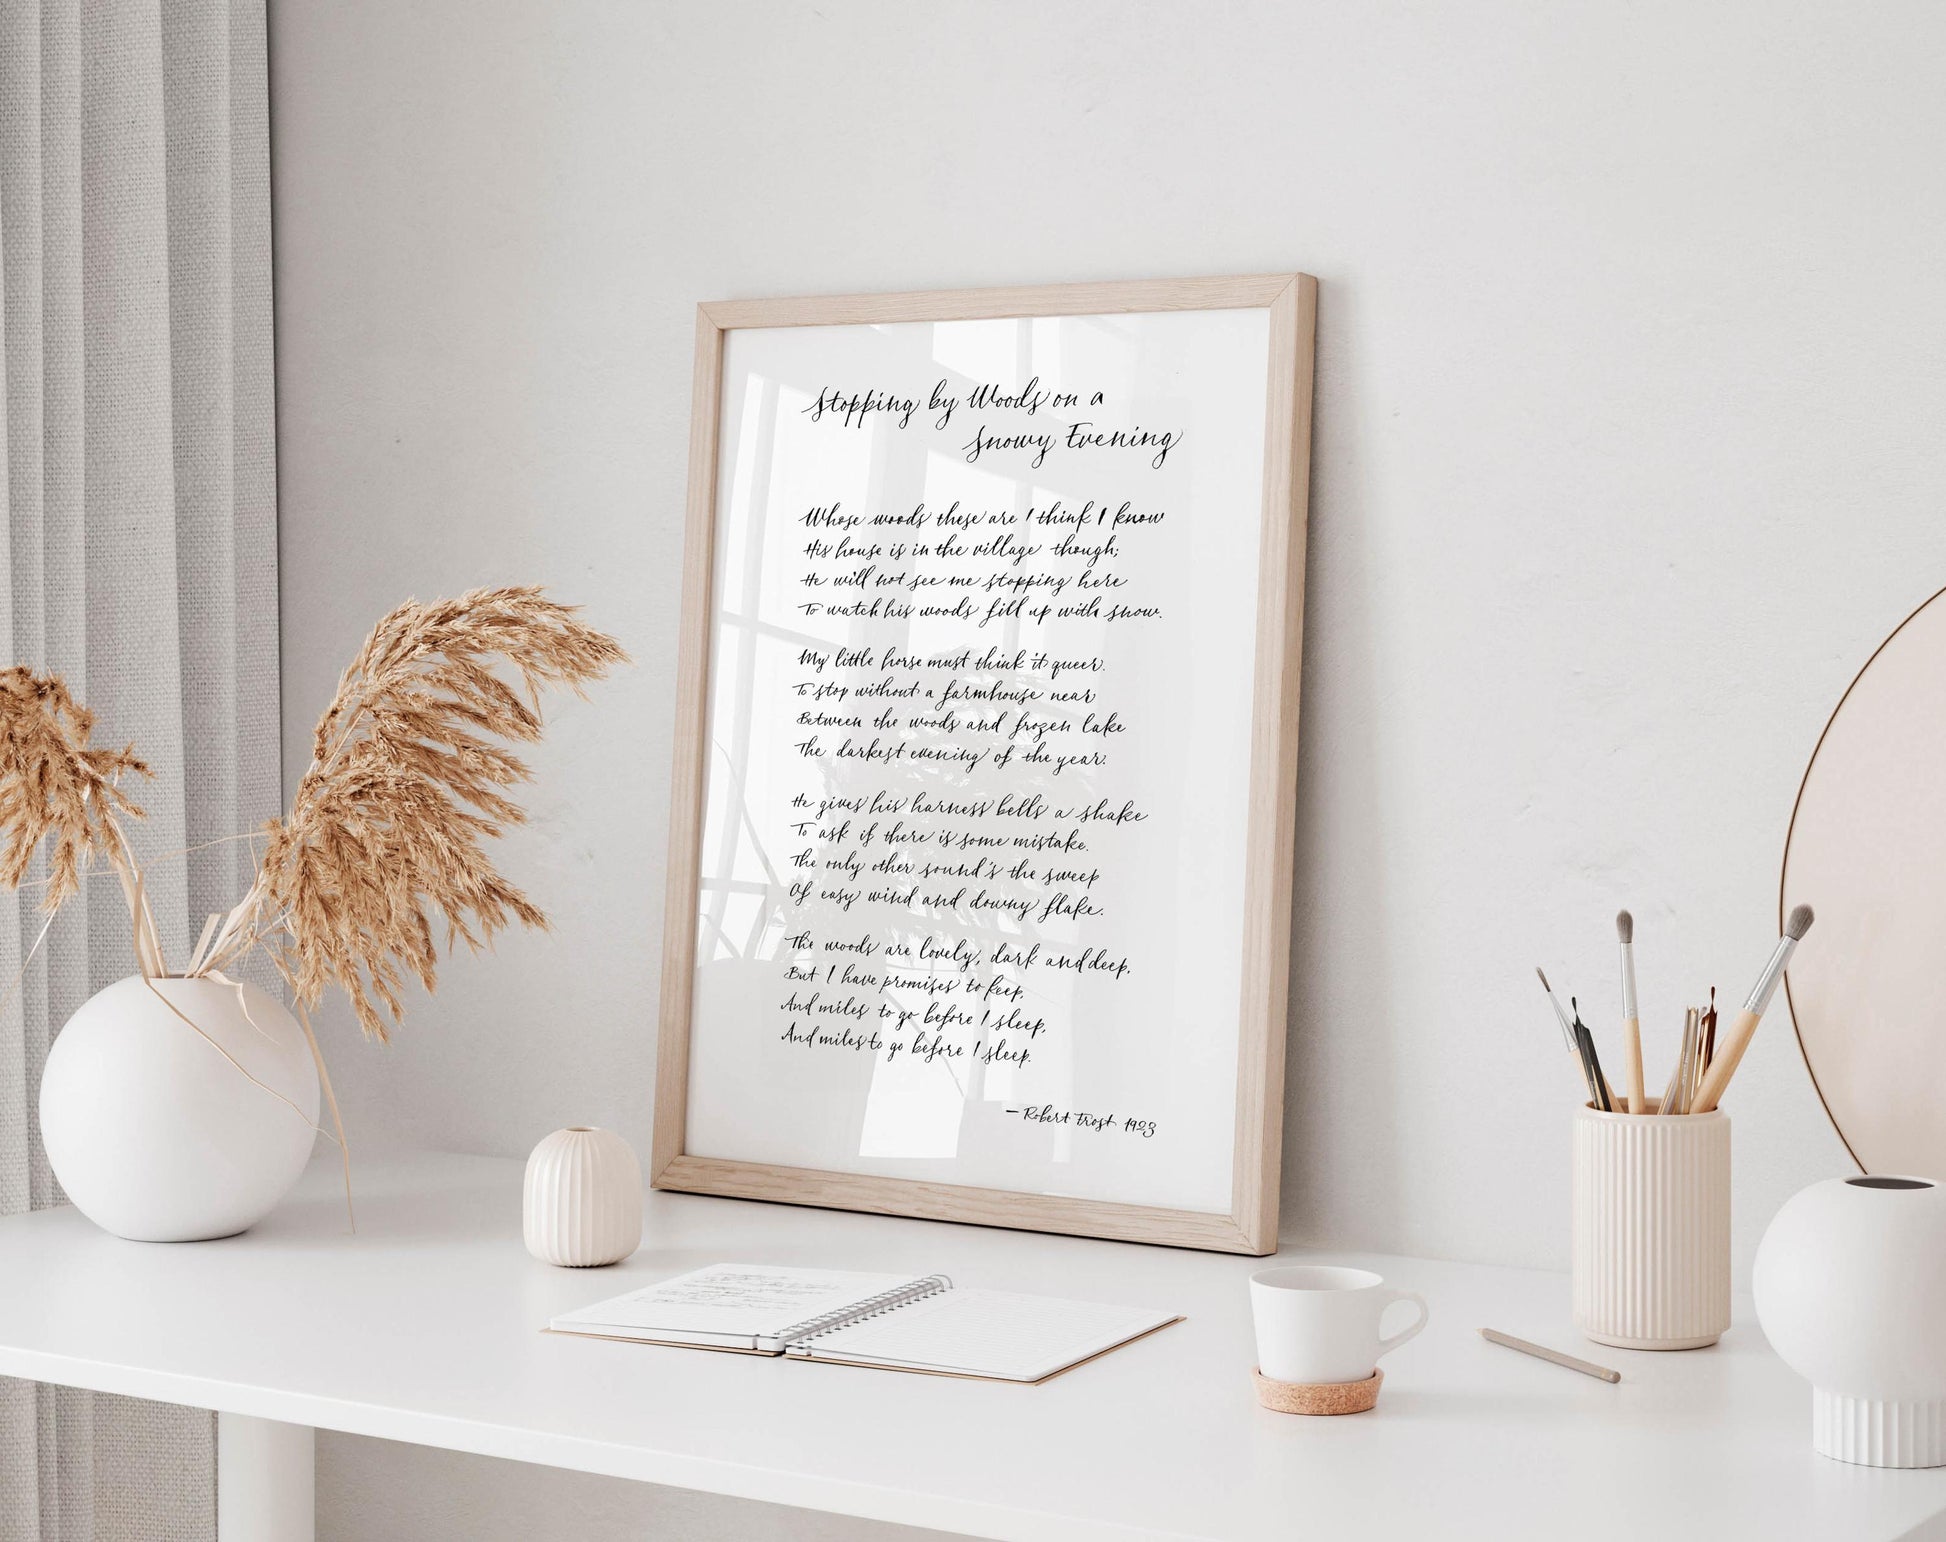 Stopping by Woods on a
Snowy Evening
Whose woods these are I think I know
His house is in the village though;
He will not see me stopping here
To watch his woods fill up with snow.
My little horse must think it queer.
To stop without a farmhouse near
Between the woods and frozen lake
The darkest evening of the year.
He gives his harness bells a shake
To ask if there is some mistake.
The only other sound's the sweep
Of easy wind and downy flake.
The woods are lovely, dark and deep,
But I have promises to keep,
And miles to go before I sleep,
And miles to go before I sleep.
— Robert Frost 1923